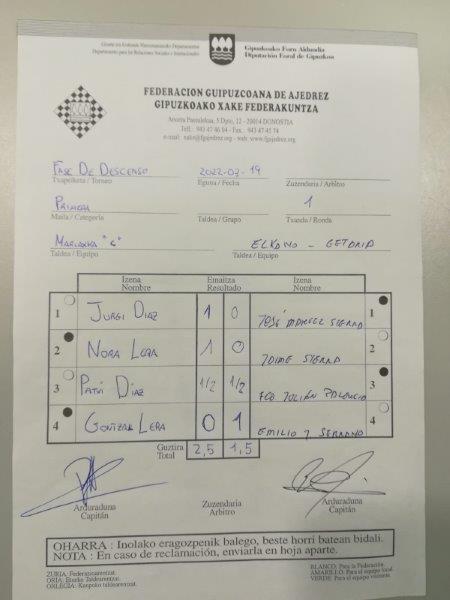 Gizarte eta Erakunde Harremanetarako Departamentua
Departamento para las Relaciones Sociales e Institucionales
Gipuzkoako Foru Aldundia
Diputación Foral de Gipuzkoa
FEDERACION GUIPUZCOANA DE AJEDREZ
GIPUZKOAKO XAKE FEDERAKUNTZA
Anoeta Pasealekua, 5 Dpto. 12 - 20014 DONOSTIA
Telf.: 943 47 46 04 - Fax.: 943 47 45 74
FASE DE DESCENSO 2022-03-19
Txapelketa / Torneo Eguna / Fecha Zuzendaria / Arbitro
PRIMERA 1
Maila / Categoría Taldea / Grupo Txanda / Ronda
MARIAKA "C" ELKANO - GETARIA
Taldea / Equipo Taldea / Equipo
Izena Emaitza Izena
Nombre Resultado Nombre
1 JURGI DIAZ 1 0 JOSÉ MANUEL SIERRA 1
2 NORA LERA 1 0 JAIME SIERRA 2
3 PATXI DIAZ 1/2 1/2 FCO. JULIÁN PALENCIO 3
4 GONTZAL LERA 0 1 EMILIO J SERRANO 4
Guztira
Total 2,5 1,5
Arduraduna Zuzendaria Arduraduna
Capitán Arbitro Capitán
OHARRA : Inolako eragozpenik balego, beste horri batean bidali.
NOTA : En caso de reclamación, enviarla en hoja aparte.
ZURIA: Federazioarentzat. BLANCO: Para la Federación.
ORIA: Etxeko Taldearentzat. AMARILLO: Para el equipo local.
ORLEGIA: Kanpoko taldearentzat. VERDE: Para el equipo visitante.